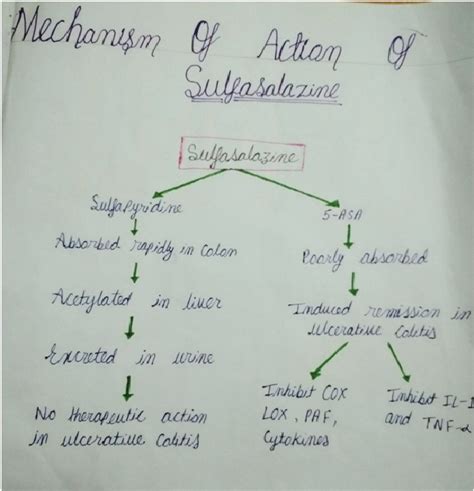 Mechanism Of Action Of
Sulfasalazine
Sulfasalazine
Sulfapyridine
Absorbed rapidly in Colon
Acetylated in liver
Excreted in urine
No therapeutic action
in ulcerative Colitis
5-ASA
Poorly absorbed
Induced remission in
ulcerative Colitis
Inhibit COX
LOX, PAF,
Cytokines
Inhibit IL-1
and TNF-α